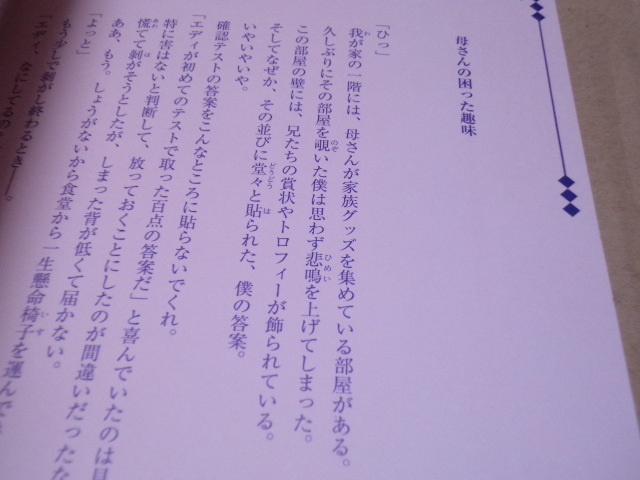 母さんの困った趣味
「ひっ」
我が家の一階には、母さんが家族グッズを集めている部屋がある。
久しぶりにその部屋を覗いた僕は思わず悲鳴を上げてしまった。
この部屋の壁には、兄たちの賞状やトロフィーが飾られている。
そしてなぜか、その並びに堂々と貼られた、僕の答案。
いやいやいや。
確認テストの答案をこんなところに貼らないでくれ。
「エディが初めてのテストで取った百点の答案だ」と喜んでいたのは
特に害はないと判断して、放っておくことにしたのが間違いだった
慌てて剝がそうとしたが、しまった背が低くて届かない。
ああ、もう。しょうがないから食堂から一生懸命椅子を運んで
「よっと」
もう少しで剝がし終わるとき――。
「エディ、なにしてるの